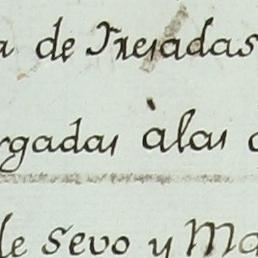 a de Fresadas
rgadas àlas
de Sevo y Ma